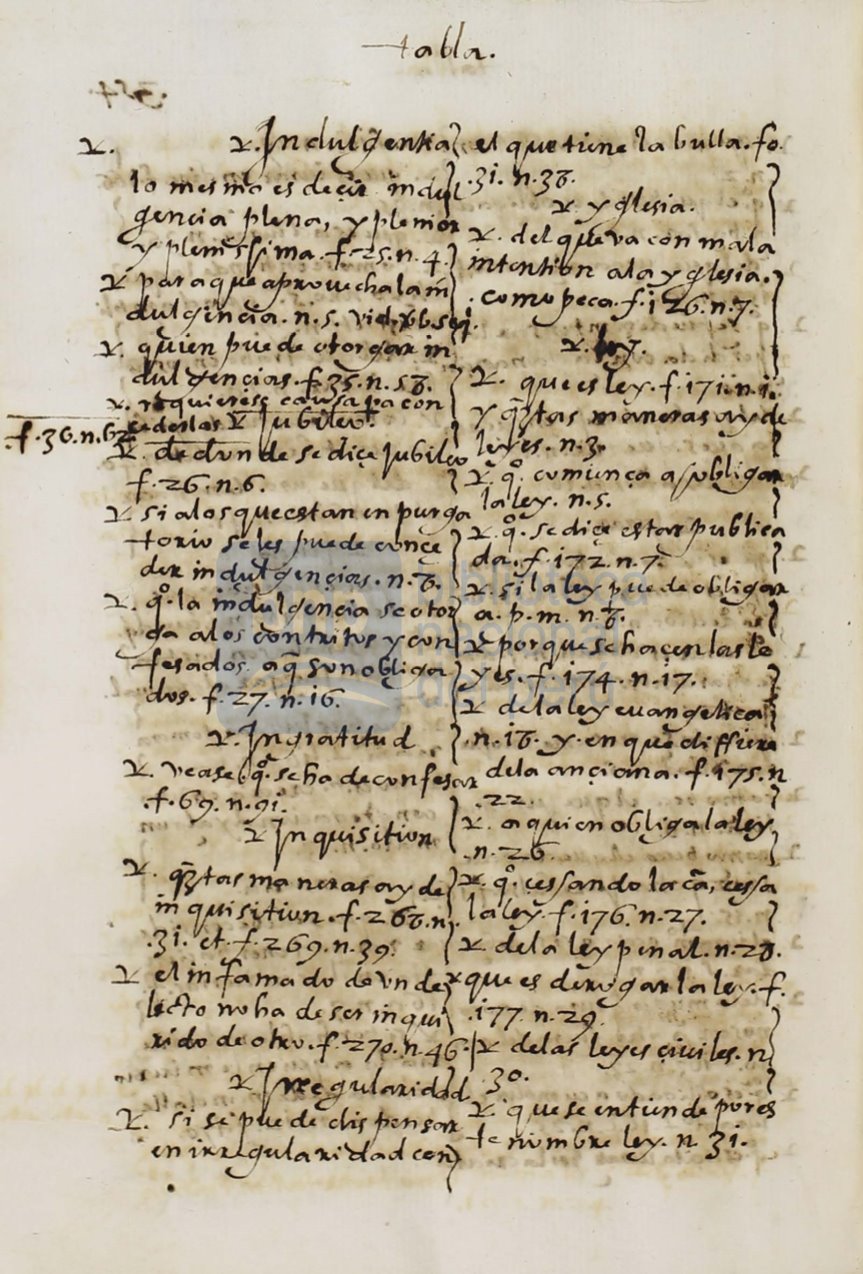 tabla.
Indulgentia
lo mesmo es deçir indul
gencia plena, y plenior
y plenissima. f. 25. n. 4.
para que aprovecha la in
dulgençia. n. 5.
quien puede otorgar in
dulgençias. f. 35. n. 58.
requierese causa pa con
cederlas Jubileo.
f. 36. n. 62
de donde se diçe Jubileo
f. 26. n. 6.
si a los que estan en purga
torio se les puede conçe
der indulgençias. n. 8.
qº. la indulgençia se otor
ga a los contritos y con
fesados. a q̃ son obliga
dos. f. 27. n. 16.
Ingratitud
vease qº. se ha de confesar
.f. 69. n. 91.
Inquisition
q̃tas maneras ay de
inquisition. f. 268. n.
.31. et. f. 269. n. 39.
el infamado de vn de
licto no ha de ser inqui
rido de otro. f. 270. n. 46.
Irregularidad
si se puede dispensar
en irregularidad con
el que tiene la bulla. fo.
.31. n. 38.
yglesia.
del que va con mala
intention a la yglesia.
como peca. f. 126. n. 7.
ley.
que es ley. f. 171. n. 1.
y q̃tas maneras ay de
leyes. n. 3.
qº. comiença a obligar
la ley. n. 5.
qº. se diçe estar publica
da. f. 172. n. 7.
si la ley puede obligar
a. p. m. n. 8.
porque se haçen las le
yes. f. 174. n. 17.
de la ley euangelica
.n. 18. y en que differe
de la ançiana. f. 175. n
.22.
a quien obliga la ley
.n. 26.
qº. çessando la cã, cessa
la ley. f. 176. n. 27.
de la ley penal. n. 28.
que es derogar la ley. f.
.177. n. 29.
de las leyes çiuiles. n
30.
que se entiende por es
te nombre ley. n. 31.